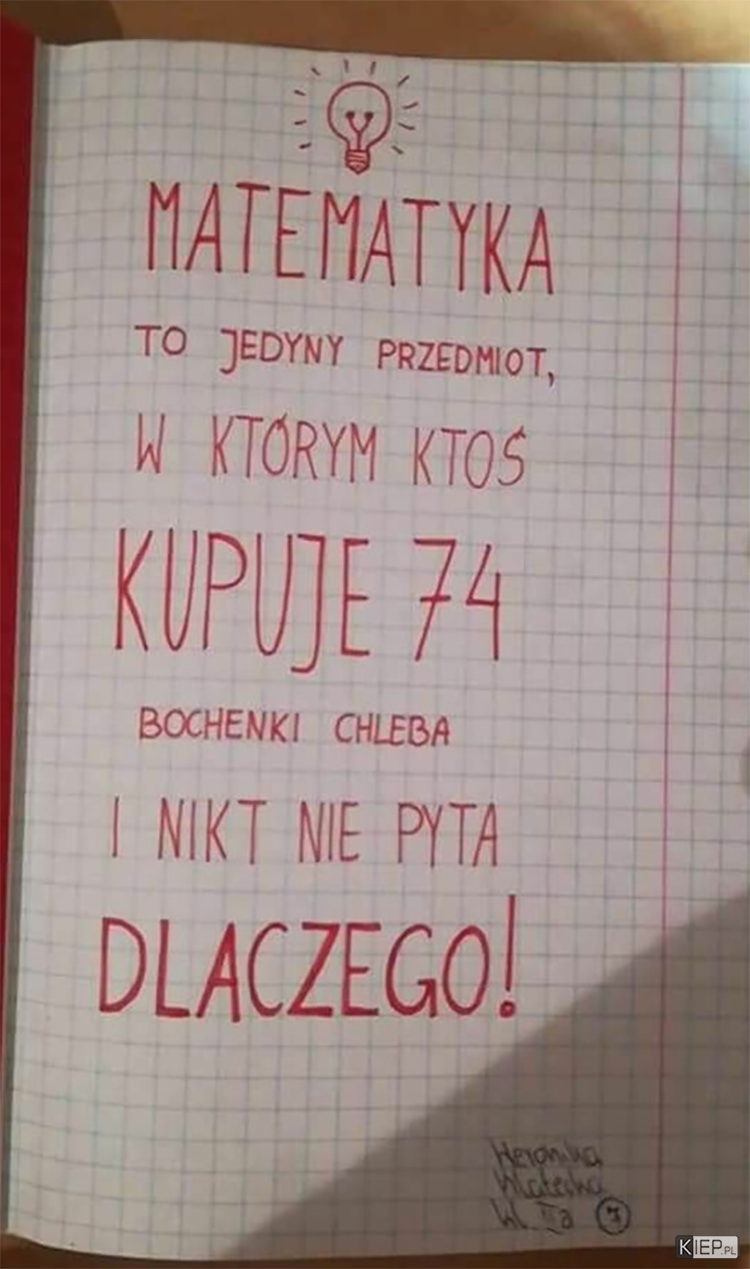 MATEMATYKA
TO JEDYNY PRZEDMIOT,
W KTÓRYM KTOŚ
KUPUJE 74
BOCHENKI CHLEBA
I NIKT NIE PYTA
DLACZEGO!
Weronika
7
KIEP.PL